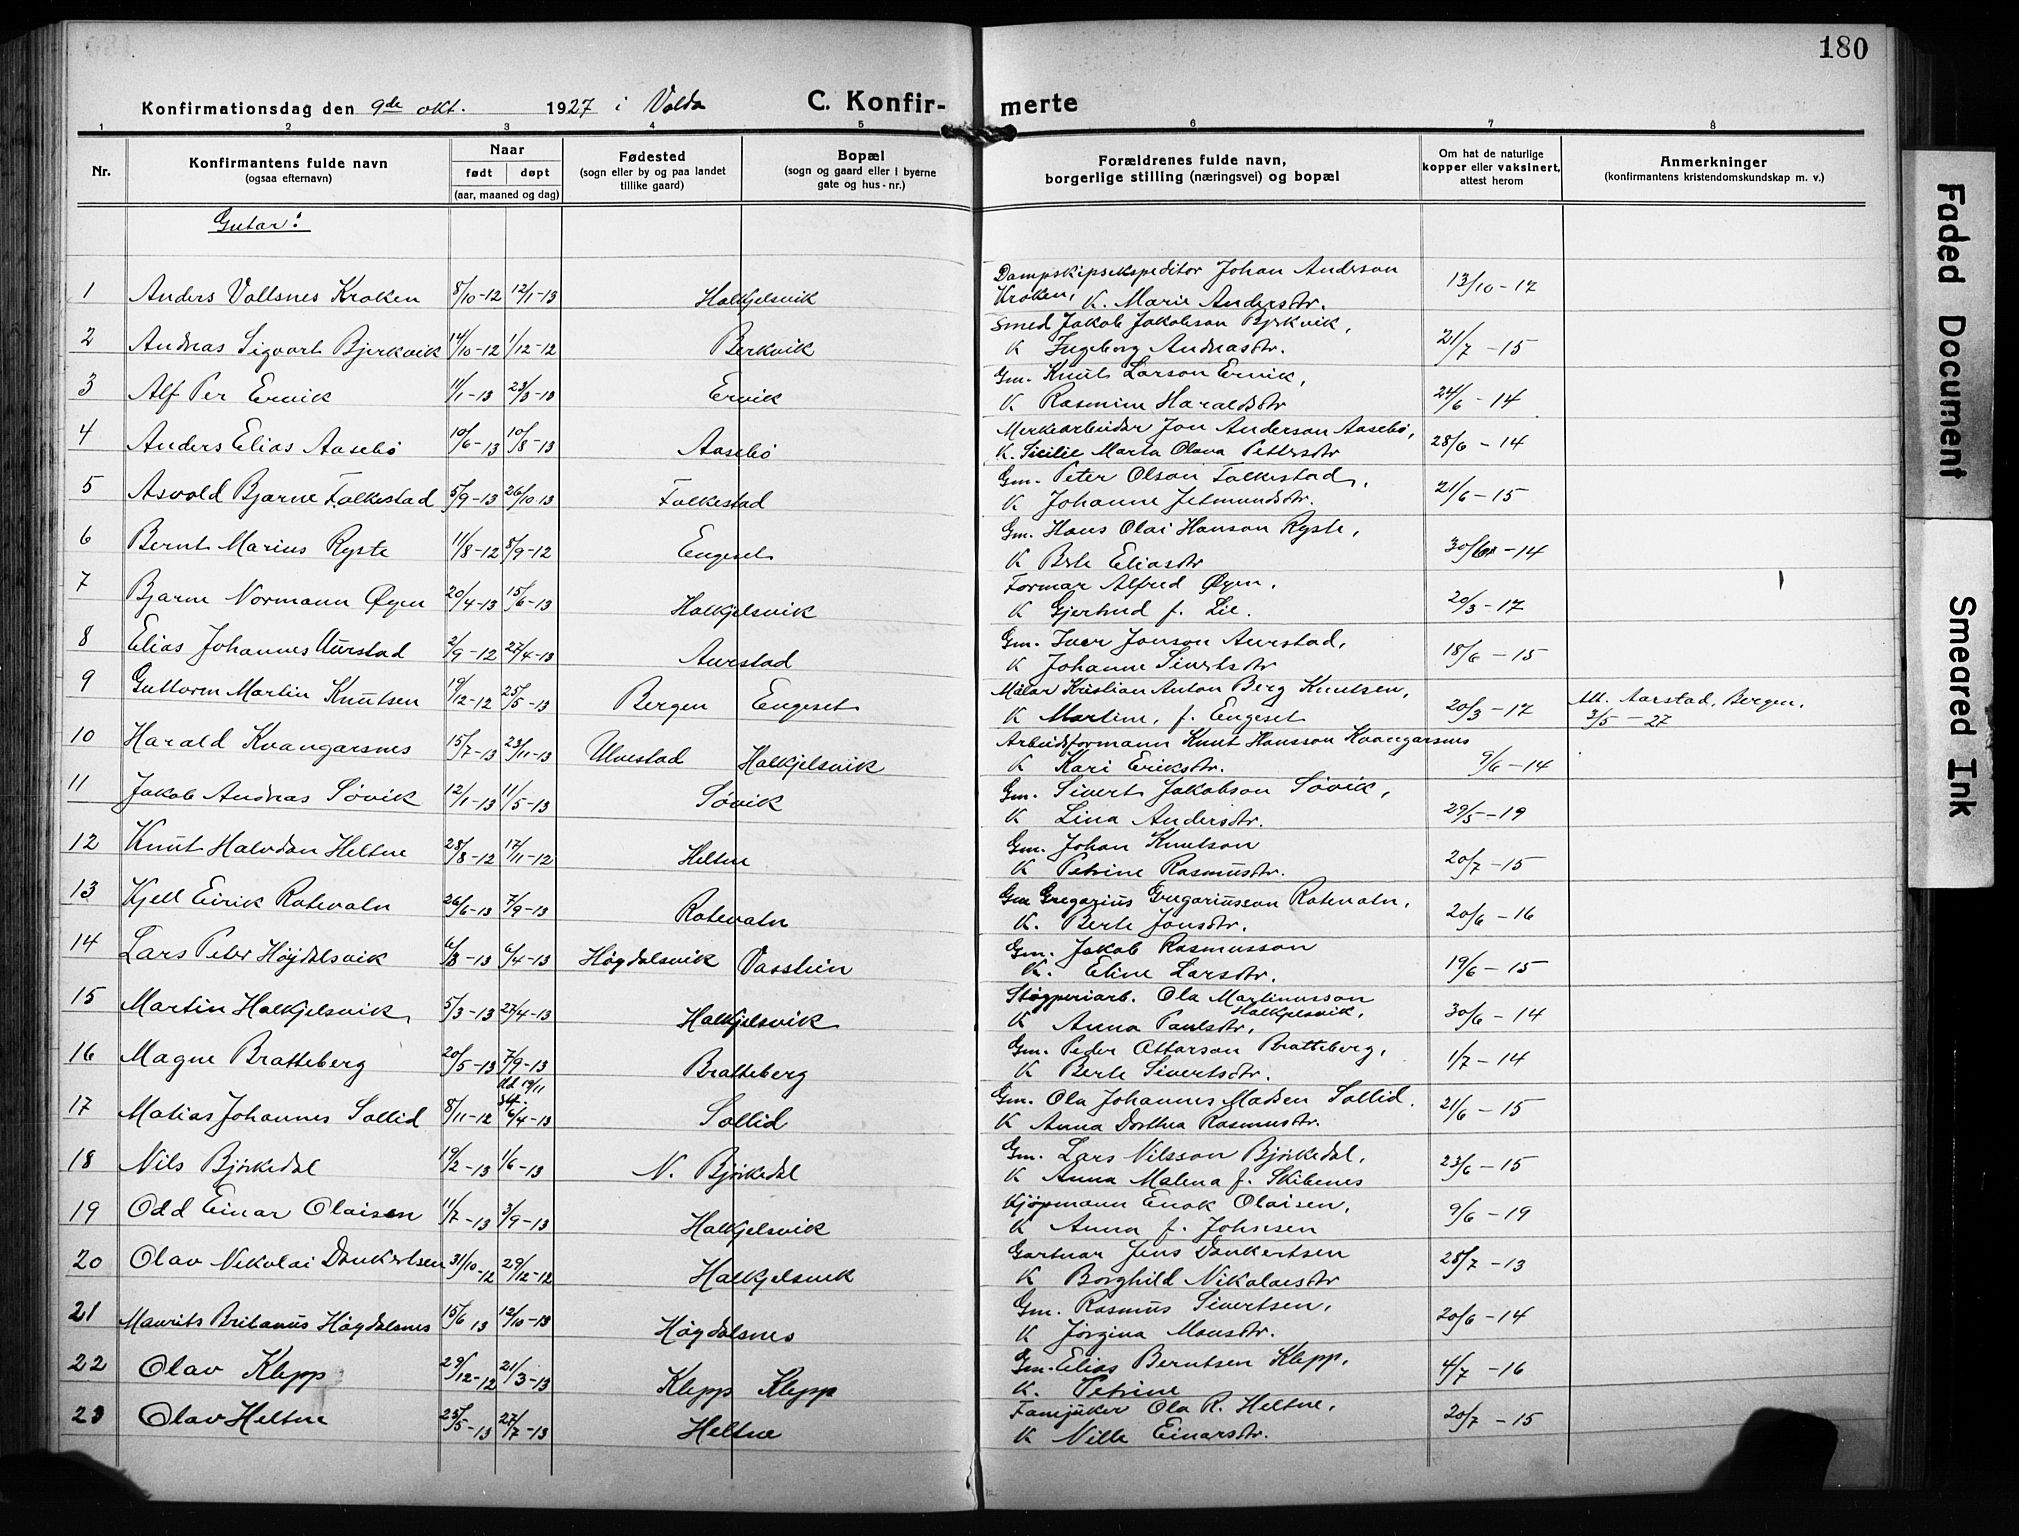 180
Konfirmationsdag den 9de okt. 1927 i Volda C. Konfir- merte
1 2 3 4 5 6 7 8
Nr. Konfirmantens fulde navn (ogsaa efternavn) Naar født døpt (aar, maaned og dag) Fødested (sogn eller by og paa landet tillike gaard) Bopæl (sogn og gaard eller i byerne gate og hus-nr.) Forældrenes fulde navn, borgerlige stilling (næringsvei) og bopæl Om hat de naturlige kopper eller vaksinert, attest herom Anmerkninger (konfirmantens kristendomskundskap m. v.)
Gutar:
1 Anders Vollsnes Kroken 8/10-12 12/1-13 Halkjelsvik Dampskipsekspeditør Johan Anderson Kroken, K. Marie Andersdtr. 13/10-17
2 Andreas Sigvart Bjerkvik 14/10-12 1/12-12 Berkvik Smed Jakob Jakobson Bjerkvik, K Ingeborg Andreasdtr. 21/7-15
3 Alf Per Ervik 11/1-13 23/3-13 Ervik Gm. Knut Larson Ervik, K Rasmine Haraldsdtr 24/6-14
4 Anders Elias Aasebø 10/6-13 10/8-13 Aasebø Merkearbeider Jon Anderson Aasebø, K. Sicilie Marta Olava Pettersdtr 28/6-14
5 Asvald Bjarne Folkestad 5/9-13 26/10-13 Folkestad Gm. Peter Olson Folkestad, K Johanne Jetmundsdtr. 21/6-15
6 Bernt Marius Ryste 11/8-12 8/9-12 Engeset Gm. Hans Olai Hanson Ryste, K Berte Eliasdtr 30/6-14
7 Bjarne Normann Øyen 20/4-13 15/6-13 Halkjelsvik Formar Alfred Øyen, K Gjertrud f. Lie. 20/3-17
8 Elias Johannes Aurstad 2/9-12 27/4-13 Aurstad Gm. Iver Jonson Aurstad, K Johanne Sivertsdtr 18/6-15
9 Guttorm Martin Knutsen 19/12-12 25/5-13 Bergen Engeset Målar Kristian Anton Berg Knutsen, K Martine, f. Engeset 20/3-17 Att. Aarstad, Bergen, 3/5-27
10 Harald Kvangarsnes 15/7-13 23/11-13 Ulvestad Halkjelsvik Arbeidsformann Knut Hansson Kvangarsnes K Kari Eriksdtr. 9/6-14
11 Jakob Andreas Søvik 12/1-13 11/5-13 Søvik Gm. Sivert Jakobson Søvik, K Lina Andersdtr. 29/5-19
12 Knut Halvdan Heltne 28/8-12 17/11-12 Heltne Gm. Johan Knutson K Petrine Rasmusdtr. 20/7-15
13 Kjell Eirik Rotevatn 26/6-13 7/9-13 Rotevatn Gm Gregarius Gregariusson Rotevatn, K. Berte Jonsdtr. 20/6-16
14 Lars Peter Høydalsvik 6/3-13 6/4-13 Høydalsvik Vasslien Gm. Jakob Rasmusson K. Eline Larsdtr. 19/6-15
15 Martin Halkjelsvik 5/3-13 27/4-13 Halkjelsvik Støyperiarb. Ola Martinusson Halkjelsvik, K Anna Paulsdtr, 30/6-14
16 Magne Bratteberg 20/5-13 7/9-13 Bratteberg Gm. Peder Ottarson Bratteberg, K Berte Sivertsdtr. 1/7-14
17 Matias Johannes Sollid 8/11-12 hd 19/11 stf. 6/4-13 Sollid Gm. Ola Johannes Madsen Sollid. K Anna Dorthea Rasmusdtr. 21/6-15
18 Nils Bjørkedal 19/2-13 1/6-13 N. Bjørkedal Gm. Lars Nilsson Bjørkedal, K Anna Malena f. Skibenes 23/6-15
19 Odd Einar Olaisen 11/7-13 3/9-13 Halkjelsvik Kjøpmann Enok Olaisen, K Anna f. Johnsen 9/6-19
20 Olav Nikolai Dankertsen 31/10-12 29/12-12 Halkjelsvik Gartnar Jens Dankertsen K Borghild Nikolaisdtr 28/7-13
21 Maurits Britanus Høydalsnes 15/6 13 12/10-13 Høydalsnes Gm. Rasmus Sivertsen, K Jørgina Monsdtr. 20/6-14
22 Olav Klepp 29/12-12 21/3-13 Klepp Klepp Gm. Elias Berntsen Klepp, K. Petrine 4/7-16
23 Olav Heltne 25/5-13 27/7-13 Heltne Fanejunker Ola R. Heltne, K Nille Einarsdtr. 20/7-15
Faded Document
Smeared Ink